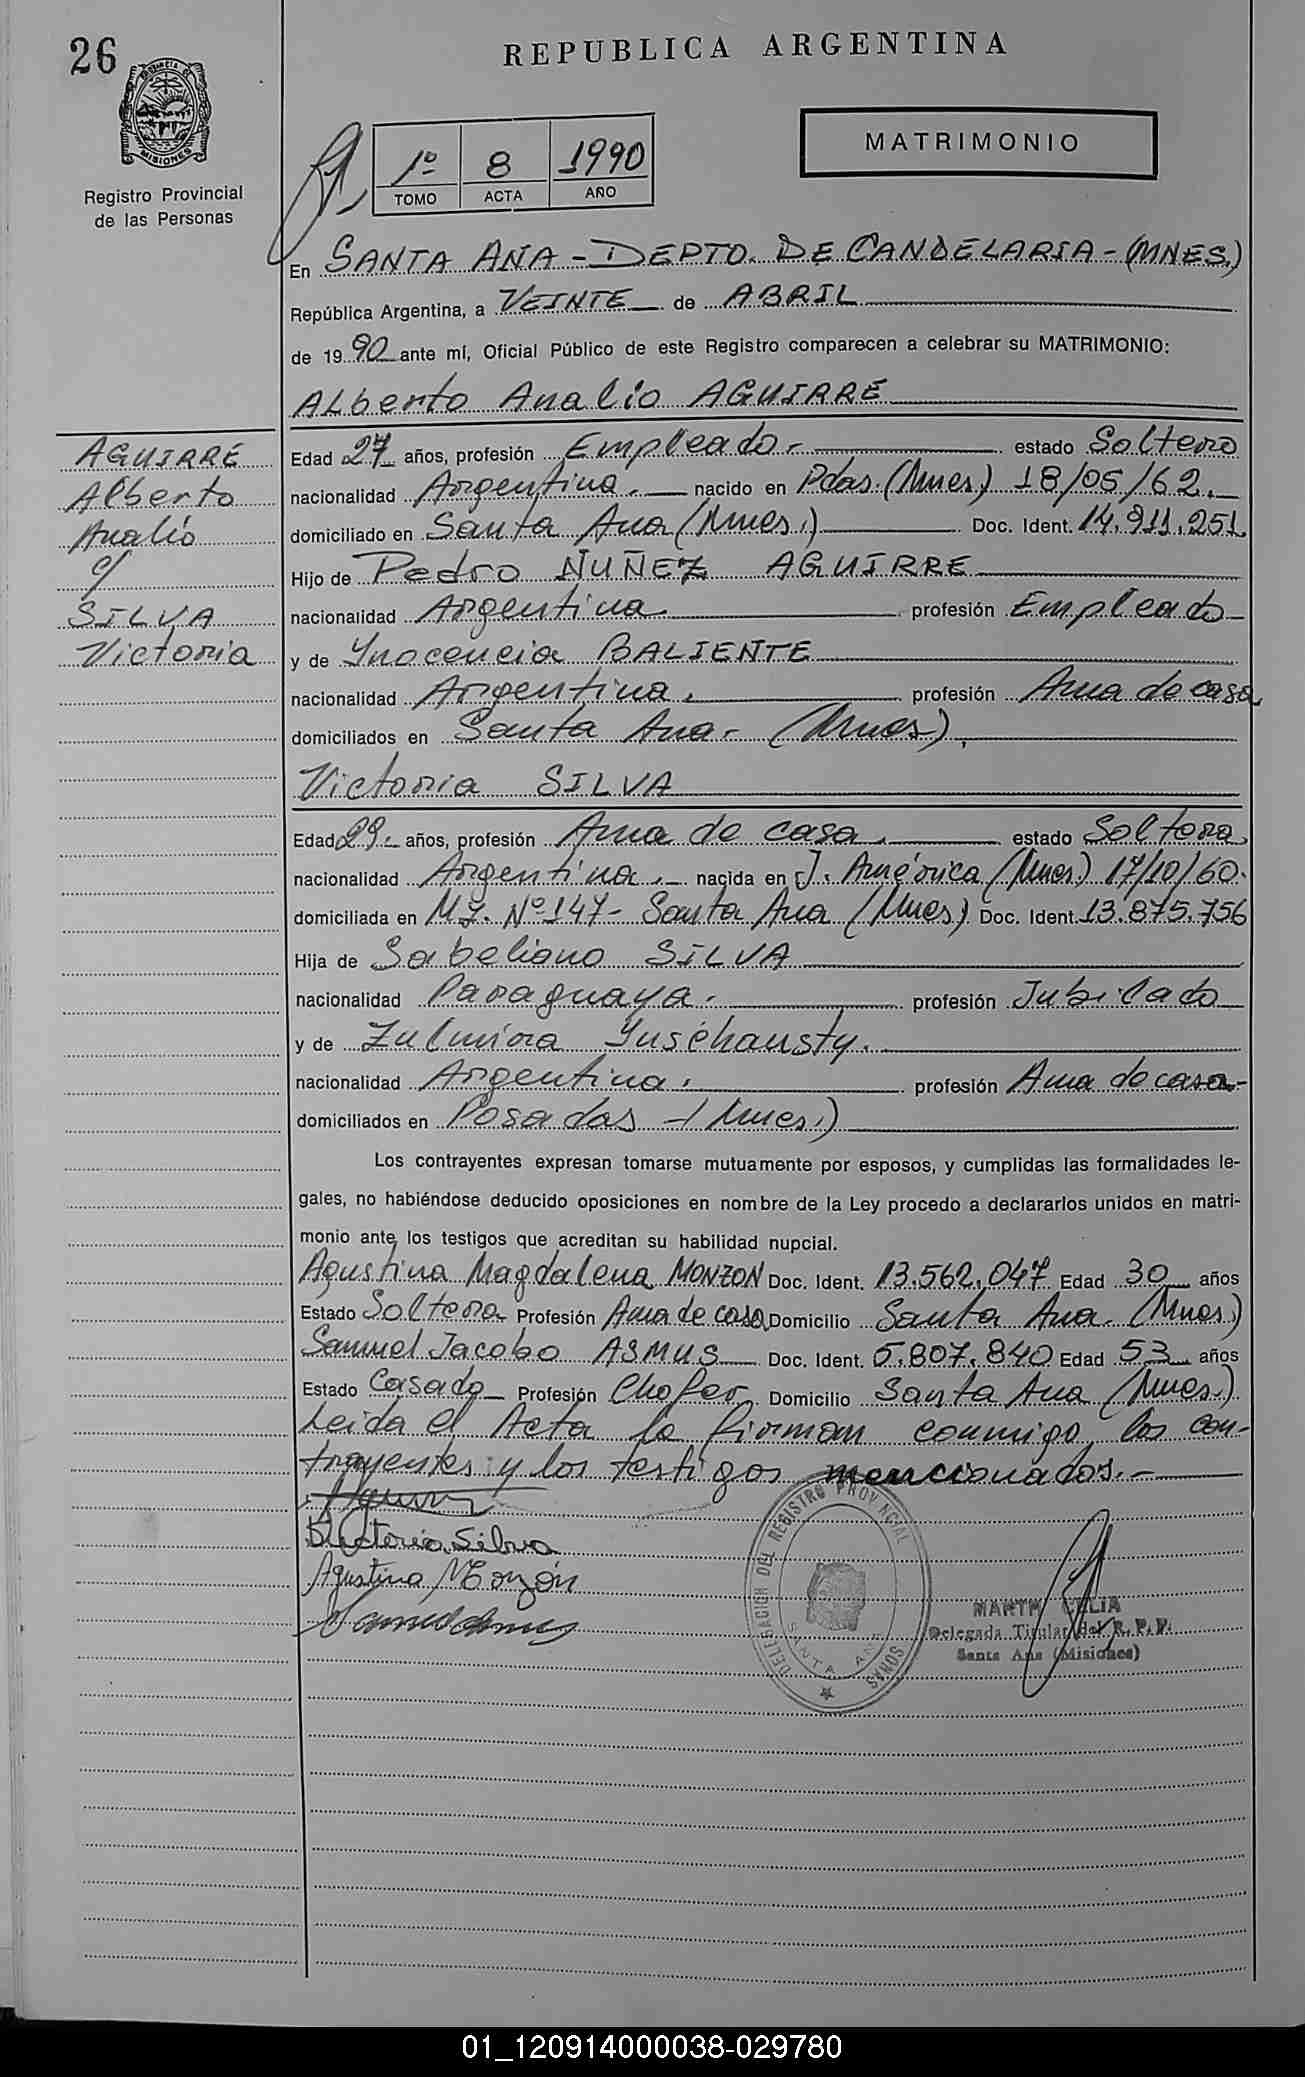 26
REPUBLICA ARGENTINA
MISIONES
Registro Provincial
de las Personas
1º 8 1990
TOMO ACTA AÑO
MATRIMONIO
En SANTA ANA - DEPTO. DE CANDELARIA - (MNES.)
República Argentina, a VEINTE de ABRIL
de 19 90 ante mí, Oficial Público de este Registro comparecen a celebrar su MATRIMONIO:
Alberto Analio AGUIRRE
AGUIRRE
Alberto
Analio
c/
SILVA
Victoria
Edad 27 años, profesión Empleado.- estado Soltero
nacionalidad Argentina. nacido en Pdas. (Mnes.) 18/05/62.
domiciliado en Santa Ana (Mnes.) Doc. Ident. 14.911.251
Hijo de Pedro NUÑEZ AGUIRRE
nacionalidad Argentina. profesión Empleado
y de Ynocencia BALIENTE
nacionalidad Argentina. profesión Ama de casa
domiciliados en Santa Ana.- (Mnes).
Victoria SILVA
Edad 29.- años, profesión Ama de casa. estado Soltera
nacionalidad Argentina.- nacida en J. América (Mnes.) 17/10/60.
domiciliada en MZ. Nº 147- Santa Ana (Mnes) Doc. Ident. 13.875.756
Hija de Sabeliano SILVA
nacionalidad Paraguaya. profesión Jubilado
y de Zulmira Yuschausty.
nacionalidad Argentina. profesión Ama de casa-
domiciliados en Posadas - (Mnes.)
Los contrayentes expresan tomarse mutuamente por esposos, y cumplidas las formalidades le-
gales, no habiéndose deducido oposiciones en nombre de la Ley procedo a declararlos unidos en matri-
monio ante los testigos que acreditan su habilidad nupcial.
Agustina Magdalena MONZON Doc. Ident. 13.562.047 Edad 30 años
Estado Soltera Profesión Ama de casa Domicilio Santa Ana. (Mnes)
Samuel Jacobo ASMUS Doc. Ident. 5.807.840 Edad 53 años
Estado Casado Profesión Chofer Domicilio Santa Ana (Mnes.)
Leida el Acta la firman conmigo los con-
trayentes y los testigos mencionados.-
Victoria Silva
Agustina Monzón
DELEGACION DEL REGISTRO PROVINCIAL
SANTA ANA
Delegada Titular del R. P. P.
Santa Ana (Misiones)
01_120914000038-029780